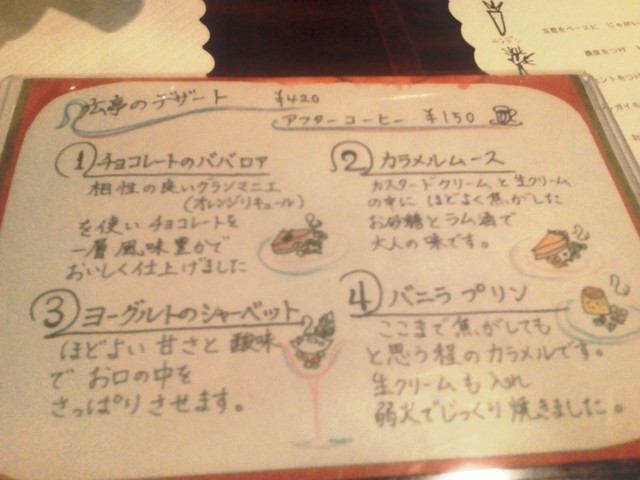 広亭のデザート ¥420
アフターコーヒー ¥150
① チョコレートのババロア
相性の良いグランマニエ
(オレンジリキュール)
を使い チョコレートを
一層 風味豊かで
おいしく仕上げました
② カラメルムース
カスタードクリームと生クリーム
の中に ほどよく焦がした
お砂糖とラム酒で
大人の味です。
③ ヨーグルトのシャーベット
ほどよい 甘さと 酸味
で お口の中を
さっぱり させます。
④ バニラ プリン
ここまで焦がしても
と思う程のカラメルです。
生クリームも入れ
弱火でじっくり焼きました。